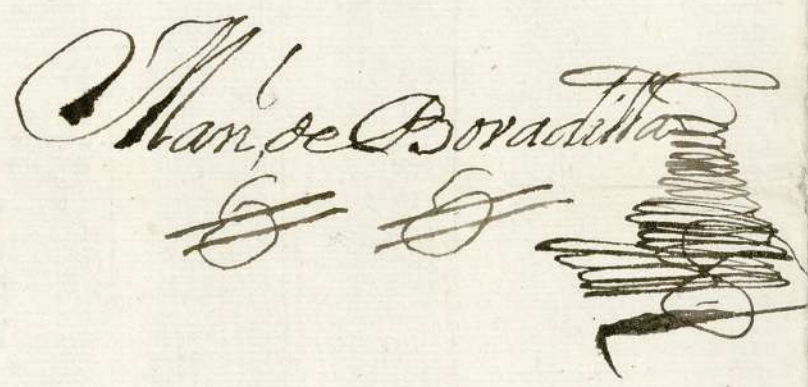 Man.l de Bovadilla